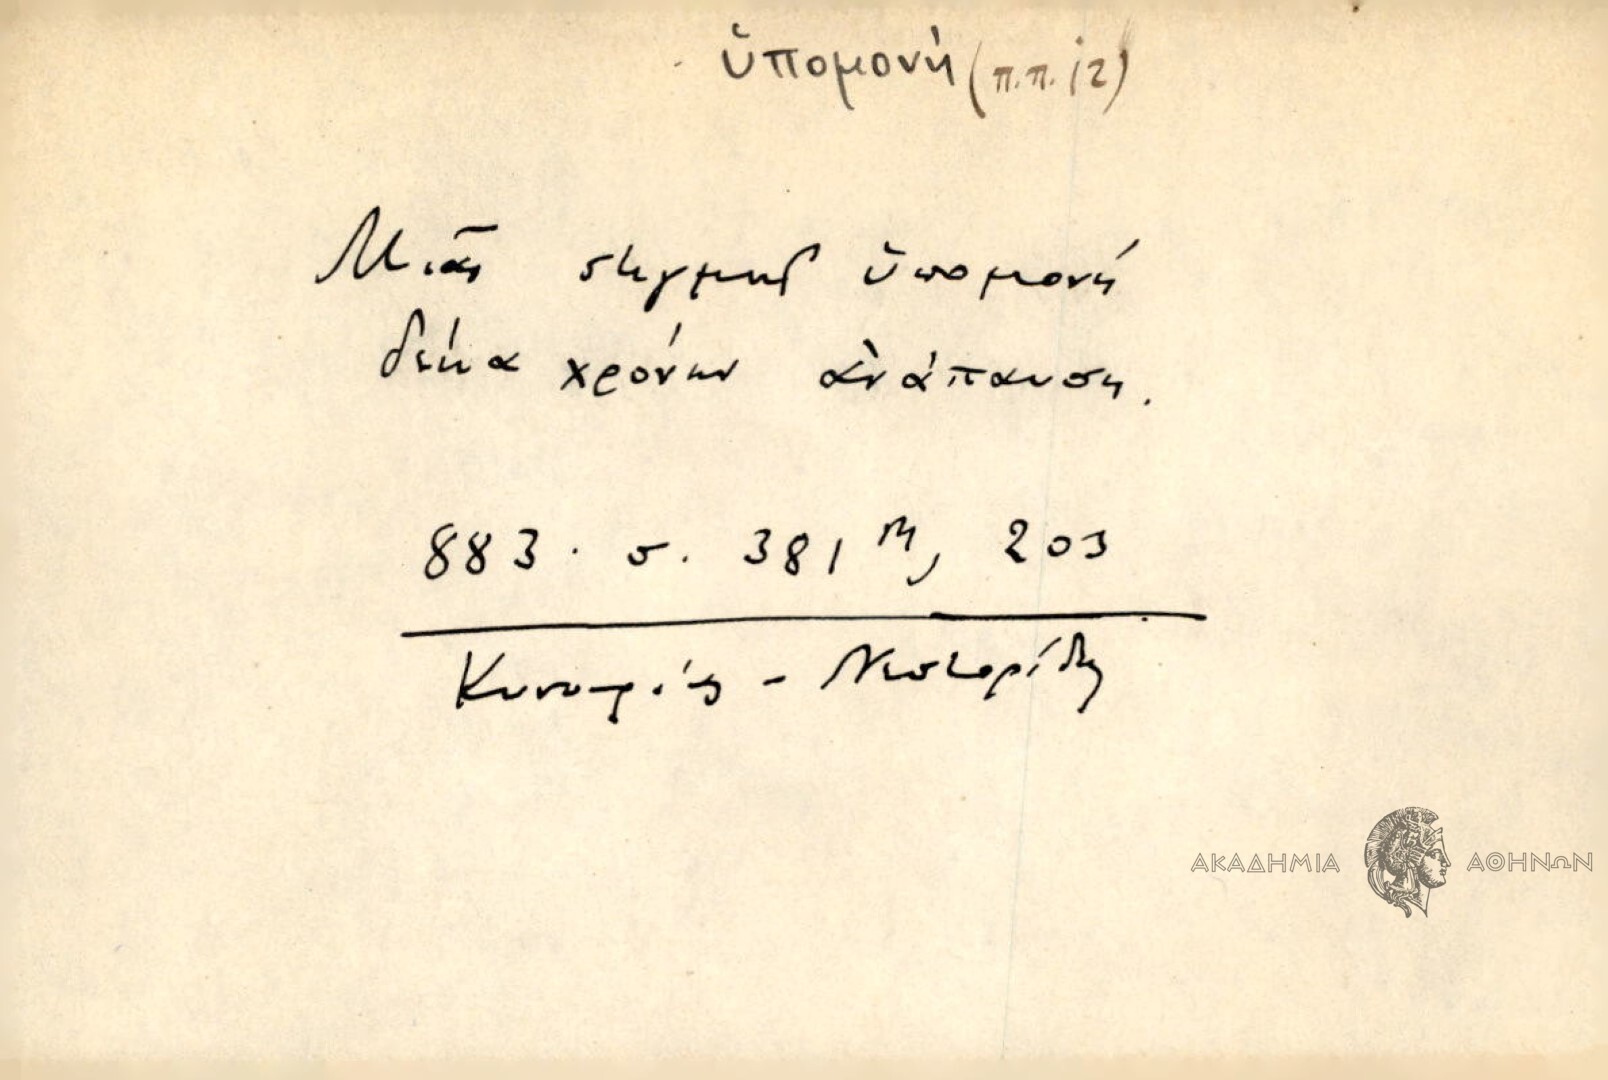 ὑπομονή (π.π. 12)
Μιᾶς στιγμῆς ὑπομονή
δέκα χρόνων ἀνάπαυση.
883. σ. 381, 203
Κυνουρίας - Νεστορίδης
ΑΚΑΔΗΜΙΑ ΑΘΗΝΩΝ